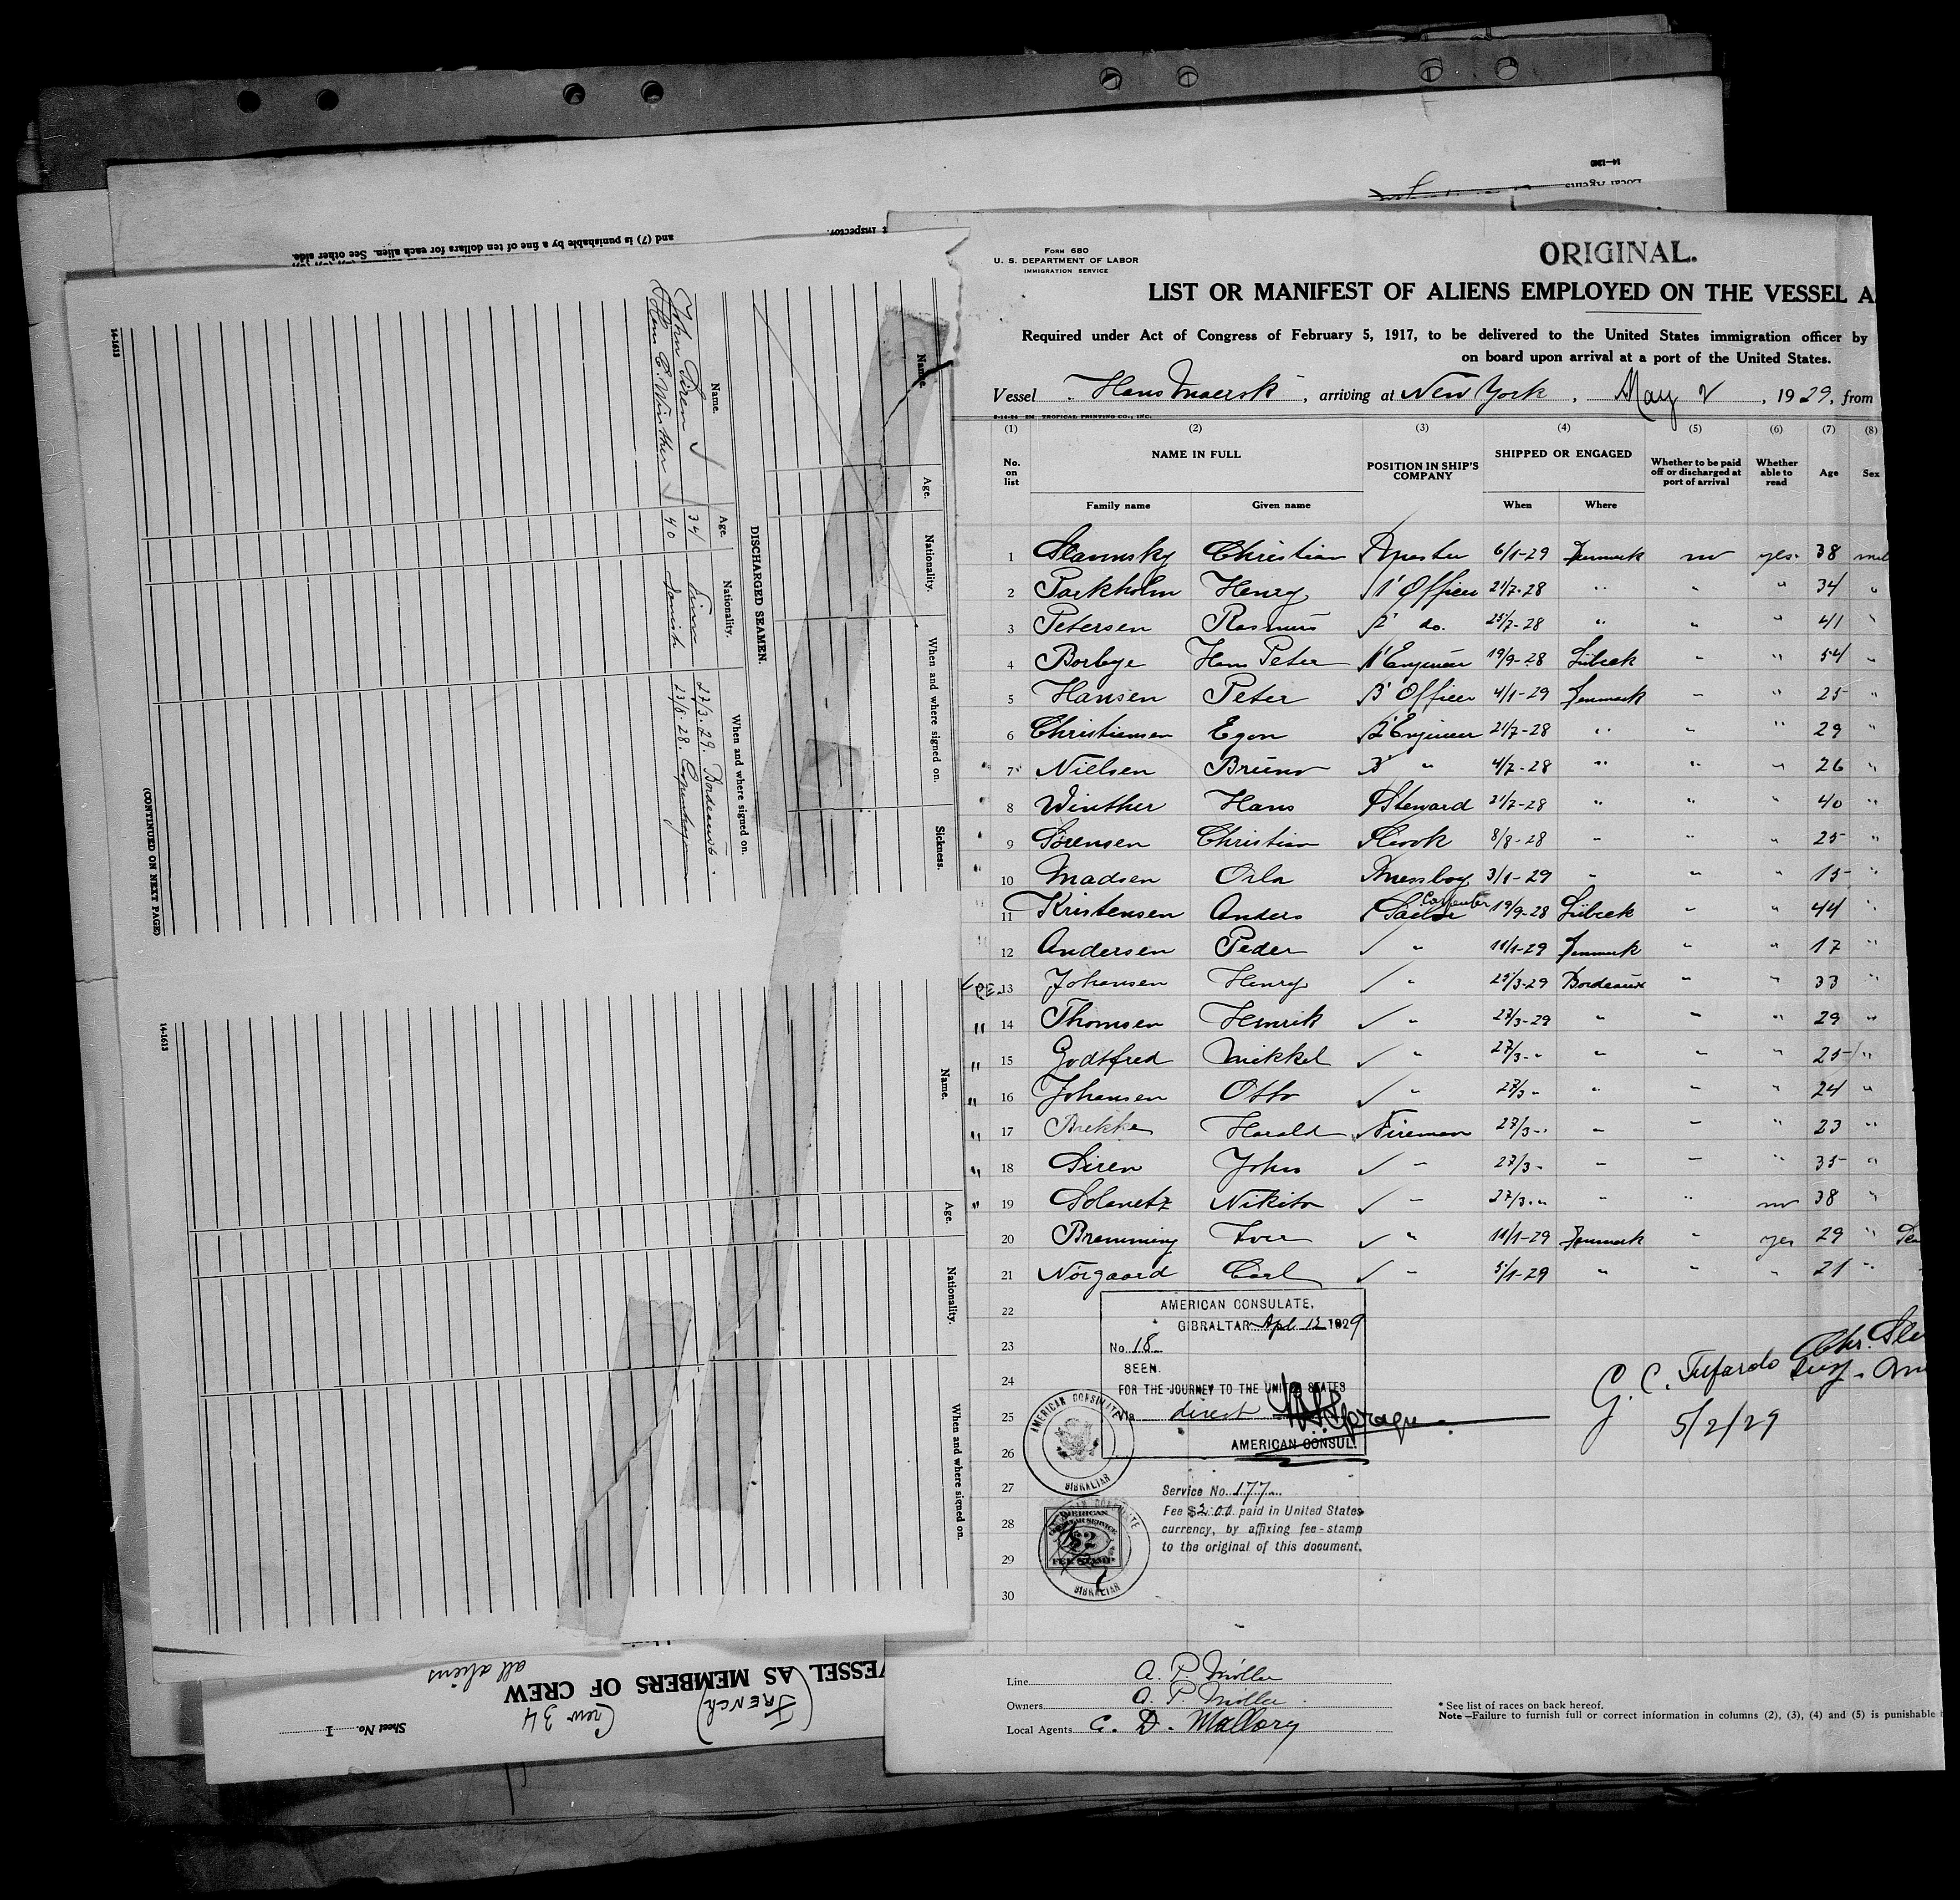 14—1240
Local Agents
Inspector.
and (7) is punishable by a fine of ten dollars for each alien. See other side.
14-1613
Name.
Age.
Nationality.
When and where signed on.
Sickness.
DISCHARGED SEAMEN.
Name.
Age.
Nationality.
When and where signed on.
John Siren 34 Finn 27/3.29. Bordeaux.
Hans C. Winther 40 Danish 23/8.28. Copenhagen
(CONTINUED ON NEXT PAGE)
14-1613
Name.
Age.
Nationality.
When and where signed on.
VESSEL AS MEMBERS OF CREW
all aliens
(FRENCH)
Crew 34
Sheet No. 1
FORM 680
U. S. DEPARTMENT OF LABOR
IMMIGRATION SERVICE
ORIGINAL.
LIST OR MANIFEST OF ALIENS EMPLOYED ON THE VESSEL A
Required under Act of Congress of February 5, 1917, to be delivered to the United States immigration officer by
on board upon arrival at a port of the United States.
Vessel Hans Maersk, arriving at New York, May 2, 1929, from
TROPICAL PRINTING CO., INC.
(1) (2) (3) (4) (5) (6) (7) (8)
No. on list
NAME IN FULL
Family name
Given name
POSITION IN SHIP'S COMPANY
SHIPPED OR ENGAGED
When
Where
Whether to be paid off or discharged at port of arrival
Whether able to read
Age
Sex
1 Christian 6/1-29 Denmark no yes 38
2 Parkholm Henry 1' Officer 21/7-28 " " " 34 "
3 Petersen Rasmus 2' do. 25/7-28 " " " 41 "
4 Borbye Hans Peter 1' Engineer 19/9-28 Lübeck " " 54 "
5 Hansen Peter 3' Officer 4/1-29 Denmark " " 25 "
6 Christiansen Egon 2' Engineer 21/7-28 " " " 29 "
7 Nielsen Bruno 3' " 4/7-28 " " " 26 "
8 Winther Hans Steward 21/7-28 " " " 40 "
9 Sørensen Christian Cook 8/8-28 " " " 25 "
10 Madsen Orla Messboy 3/1-29 " " " 15 "
11 Kristensen Anders Carpenter Sailor 19/9-28 Lübeck " " 44 "
12 Andersen Peder " 11/1-29 Denmark " " 17 "
13 Johansen Henry " 25/3-29 Bordeaux " " 33 "
14 Thomsen Henrik " 27/3-29 " " " 29 "
15 Godtfred Mikkel " 27/3-" " " " 25 "
16 Johansen Otto " 27/3 " " " " 24 "
17 Brekke Harald Fireman 27/3-" " " " 23 "
18 Siren John " 27/3- " " " 35 "
19 Solovetz Nikita " 27/3-" " " no 38 "
20 Bramming Iver " 11/1-29 Denmark " yes 29 "
21 Nørgaard Carl " 5/1-29 " " " 21 "
22
23
24
25
26
27
28
29
30
AMERICAN CONSULATE,
GIBRALTAR Apl 12 1929
No. 18
SEEN.
FOR THE JOURNEY TO THE UNITED STATES
Via direct
AMERICAN CONSUL.
AMERICAN CONSULATE
GIBRALTAR
Service No. 177
Fee $2.00 paid in United States
currency, by affixing fee-stamp
to the original of this document.
AMERICAN
CONSULAR SERVICE
$2
FEE STAMP
GIBRALTAR
G. C. Tufardo
5/2/29
Line A. P. Möller
Owners A. P. Möller
Local Agents C. D. Mallory
* See list of races on back hereof.
Note—Failure to furnish full or correct information in columns (2), (3), (4) and (5) is punishable